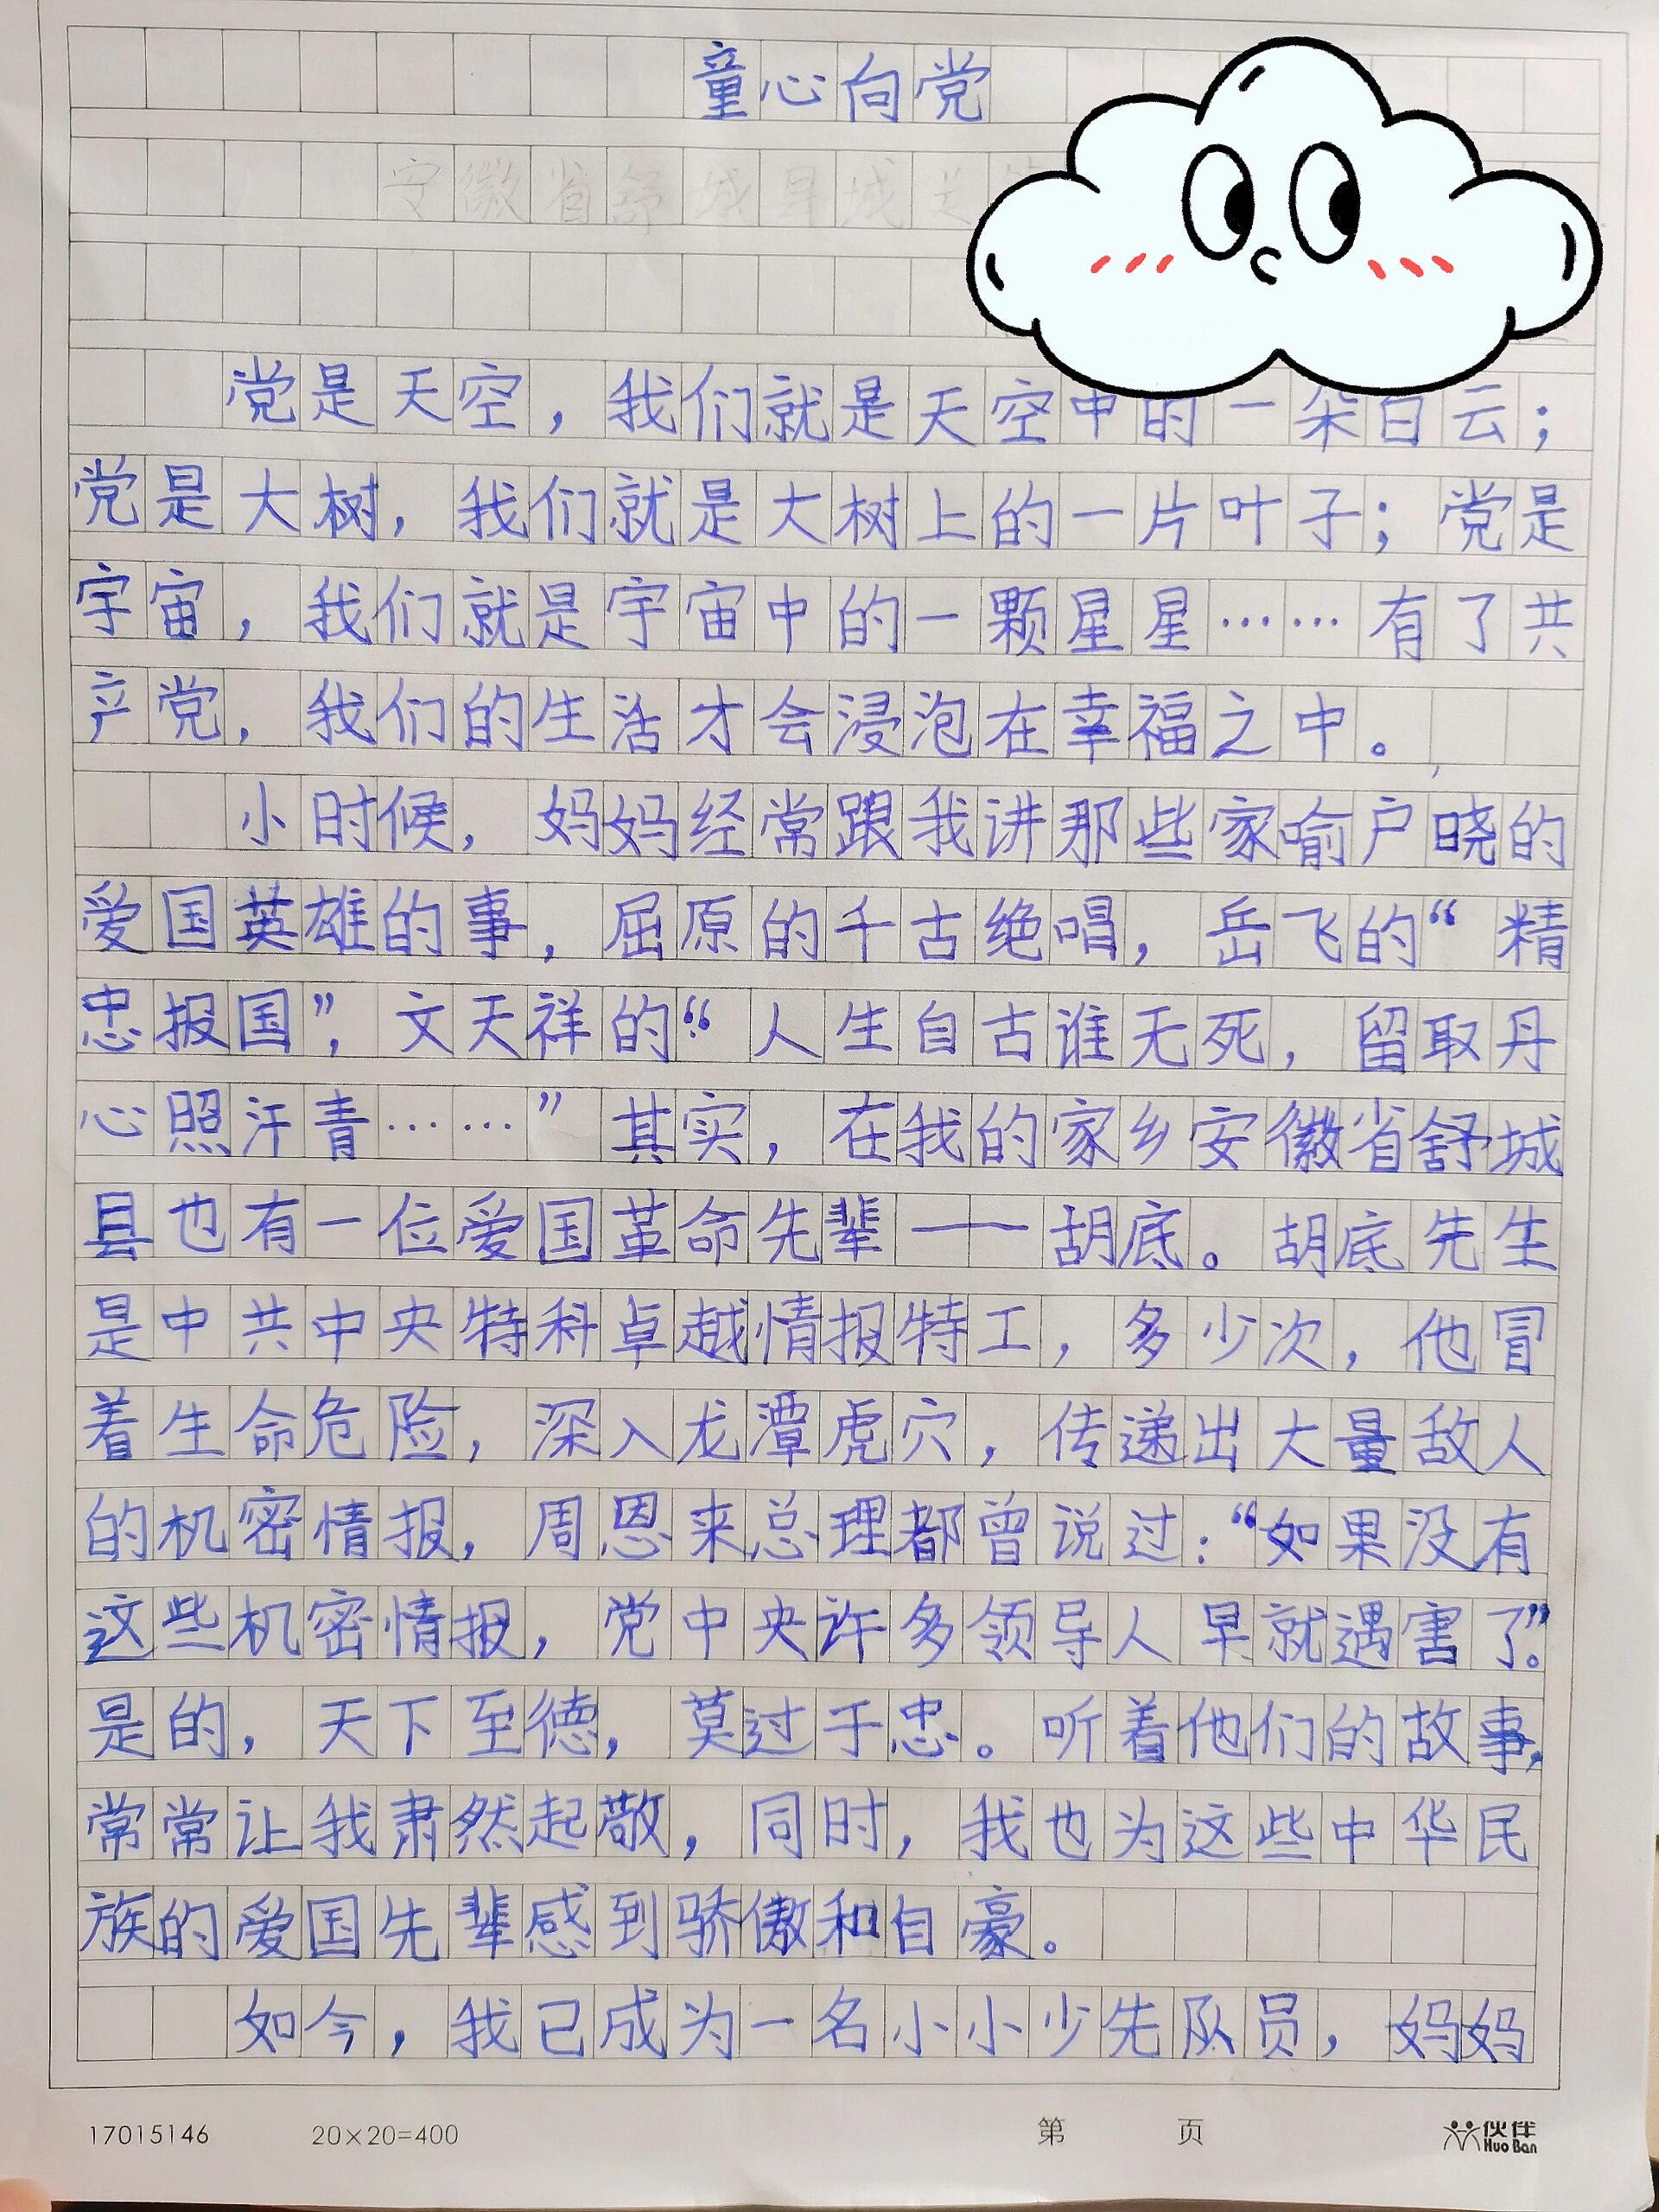 童心向党
安徽省舒城县城关
党是天空，我们就是天空中的一朵白云；
党是大树，我们就是大树上的一片叶子；党是
宇宙，我们就是宇宙中的一颗星星……有了共
产党，我们的生活才会浸泡在幸福之中。
小时候，妈妈经常跟我讲那些家喻户晓的
爱国英雄的事，屈原的千古绝唱，岳飞的“精
忠报国”，文天祥的“人生自古谁无死，留取丹
心照汗青……”其实，在我的家乡安徽省舒城
县也有一位爱国革命先辈——胡底。胡底先生
是中共中央特科卓越情报特工，多少次，他冒
着生命危险，深入龙潭虎穴，传递出大量敌人
的机密情报，周恩来总理都曾说过：“如果没有
这些机密情报，党中央许多领导人早就遇害了”。
是的，天下至德，莫过于忠。听着他们的故事，
常常让我肃然起敬，同时，我也为这些中华民
族的爱国先辈感到骄傲和自豪。
如今，我已成为一名小小少先队员，妈妈
17015146 20×20=400 第 页 伙伴 HuoBan